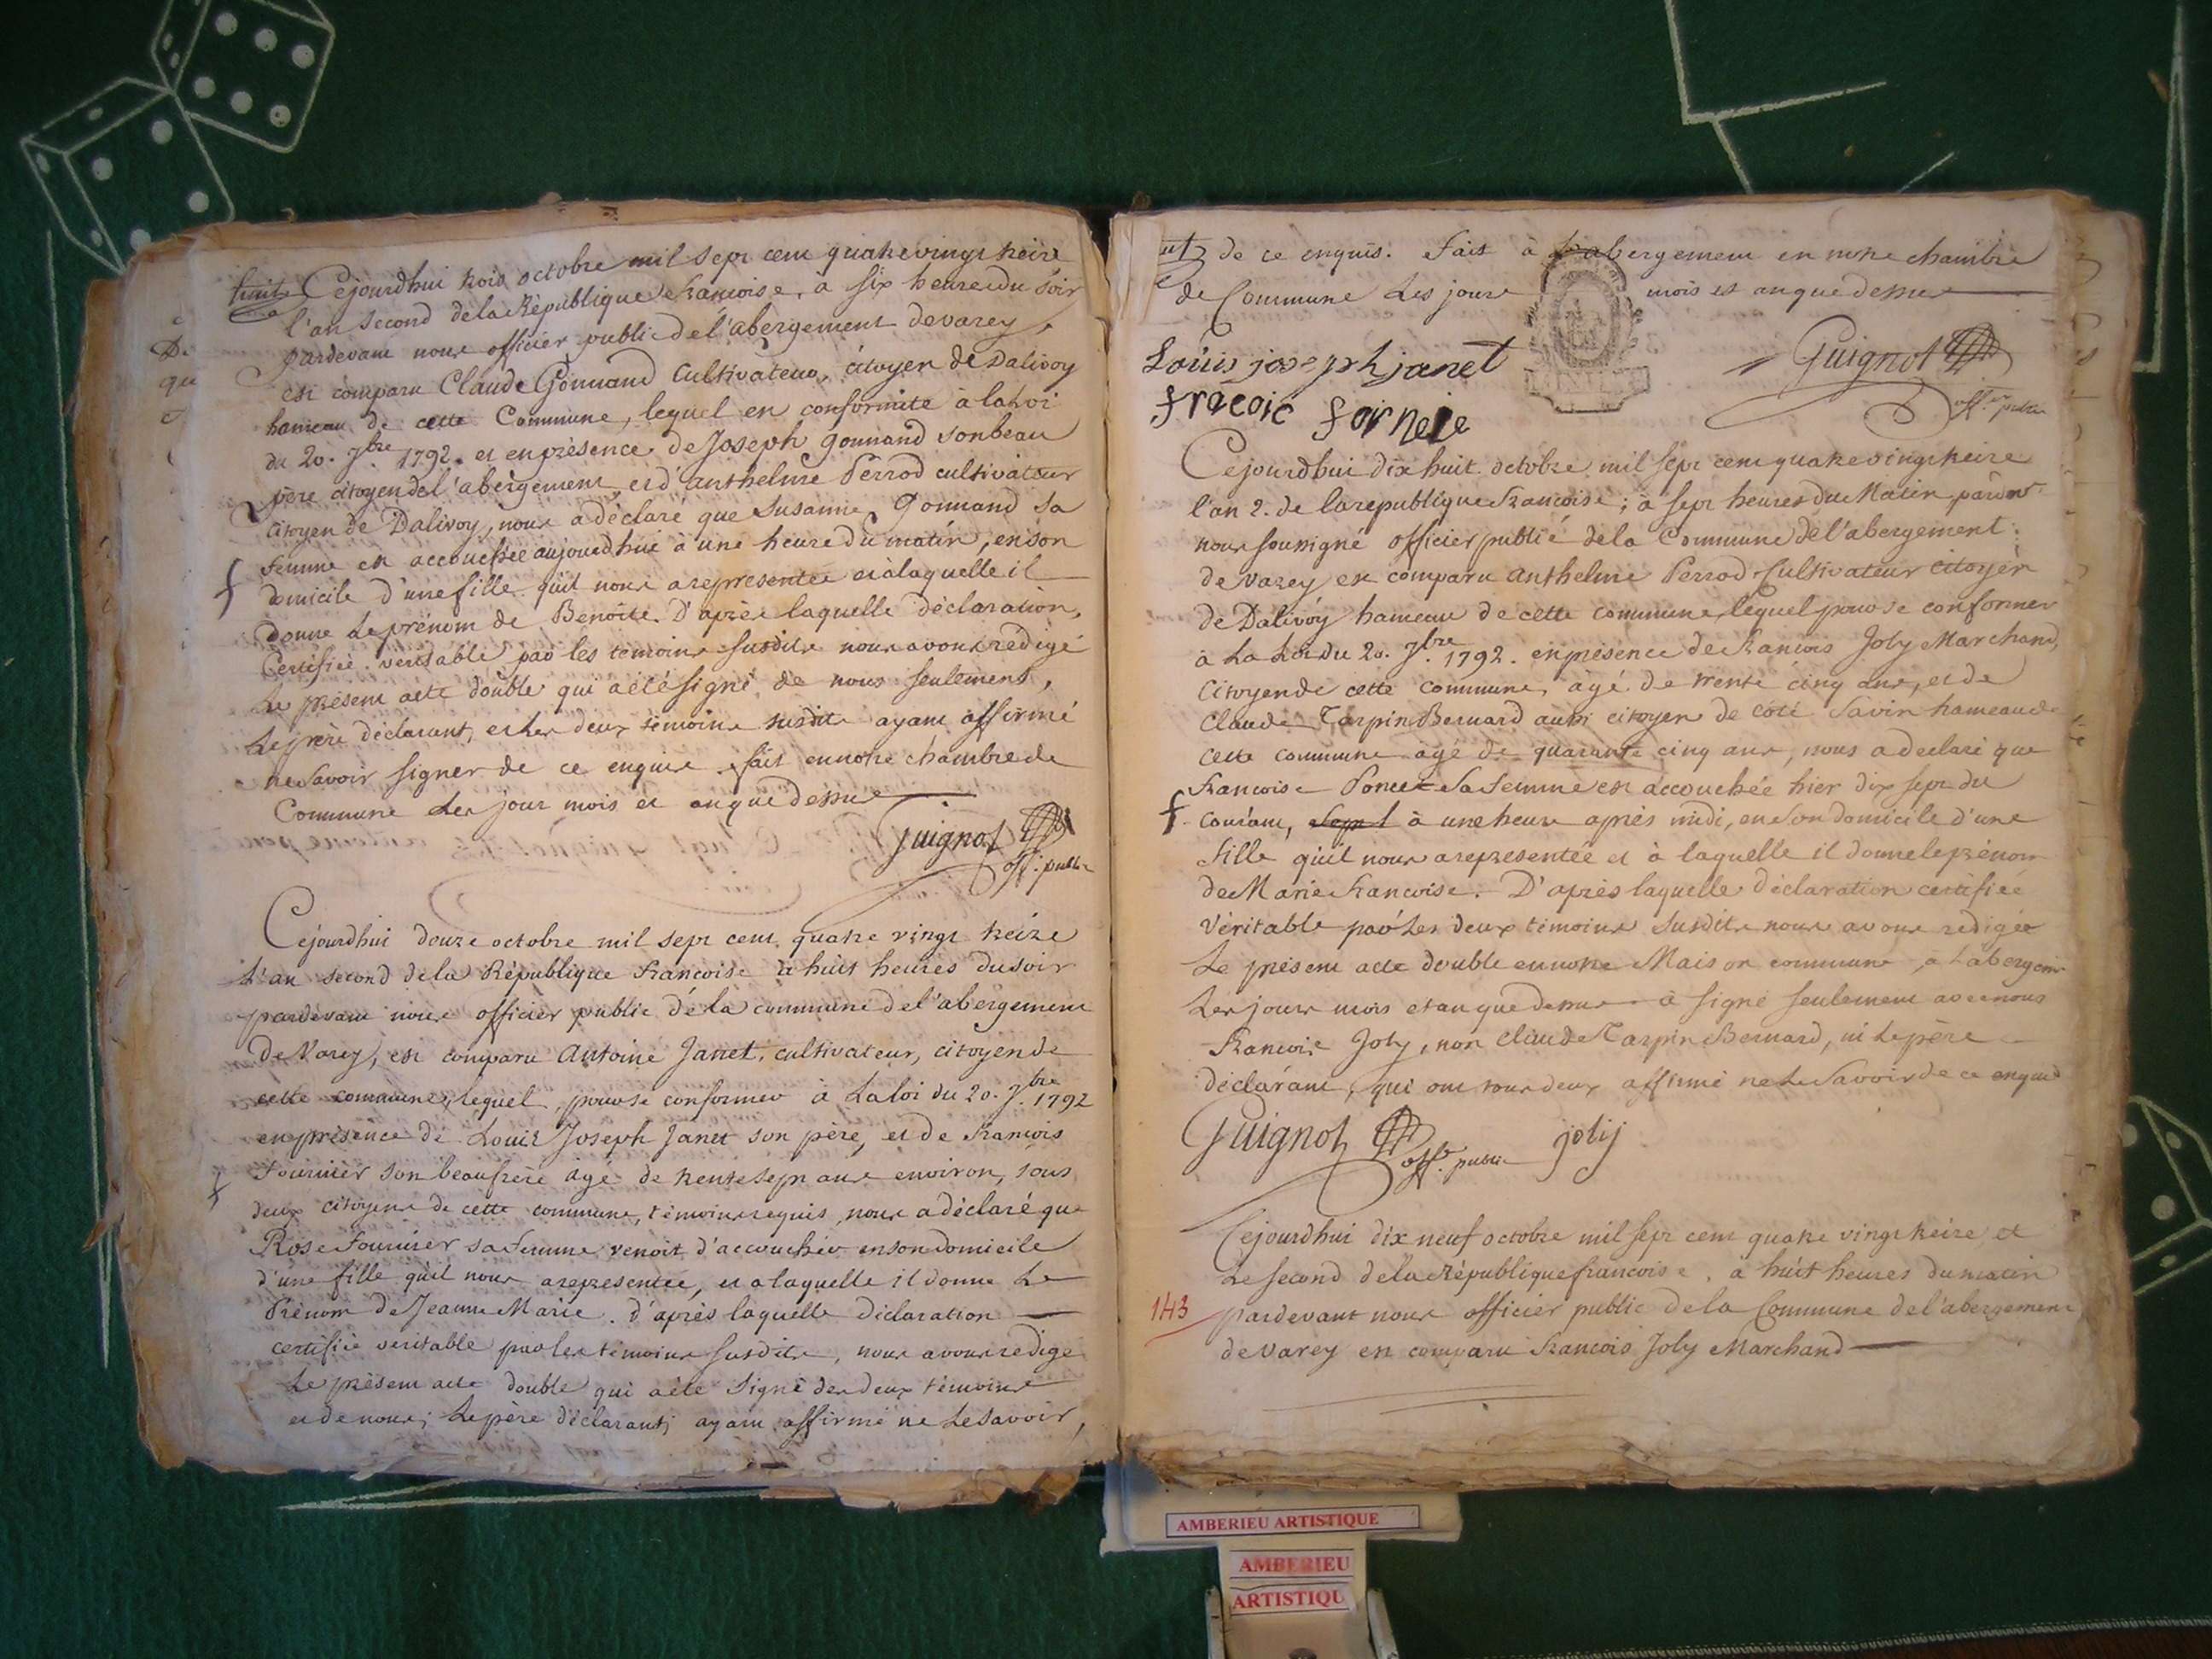 huit
Cejourdhui trois octobre mil sept cent quatrevingt treize
l'an second de la République francoise, à six heures du soir
pardevant nous officier public de l'abergement de varey,
est comparu Claude Gonnand Cultivateur, citoyen de Dalivoy
hameau de cette Commune, lequel en conformité à la Loi
du 20. 7bre. 1792. et en présence de Joseph gonnand son beau
père citoyen del'abergement, et d'anthelme Perrod cultivateur
citoyen de Dalivoy, nous a déclaré que Susanne Gonnand sa
femme est accouchée aujourdhui à une heure du matin, en son
domicile d'une fille qu'il nous a representée et à laquelle il
donne Le prénom de Benoite. D'après laquelle déclaration,
Certifiée veritable par les temoins susdits nous avons rédigé
Le présent acte double qui a été signé de nous seulement,
Le père déclarant, et Les deux témoins susdits ayant affirmé
ne savoir signer de ce enquis. fait en notre chambre de
Commune Les jour mois et an que dessus
Guignot
off. public
Cejourdhui douze octobre mil sept cent quatre vingt treize
L'an second de la République francoise à huit heures du soir
pardevant nous officier public de la commune del'abergement
de Varey, est comparu Antoine Janet, cultivateur, citoyen de
cette commune, lequel, pour se conformer à La loi du 20. 7bre. 1792
en présence de Louis Joseph Janet son père, et de francois
Fournier son beaufrère agé de trente sept ans environ, tous
deux citoyens de cette commune, témoins requis, nous a déclaré que
Rose Fournier sa femme venoit d'accoucher en son domicile
d'une fille qu'il nous a representée, et a laquelle il donne Le
Prénom de Jeanne Marie. d'après laquelle déclaration
certifiée veritable par les témoins susdits, nous avons rédigé
Le présent acte double qui a été signé des deux témoins
et de nous; Le père déclarant ayant affirmé ne Le savoir,
de ce enquis. Fait à L'abergement en notre chambre
de Commune Les jours mois et an que dessus
Guignot
off.er public
Loüis joseph janet
fracois forneie
Cejourdhui dix huit octobre mil sept cent quatrevingt treize
l'an 2. de la republique francoise; à sept heures du Matin, pardvt
nous soussigné officier public de la Commune de l'abergement
de Varey est comparu Anthelme Perrod Cultivateur citoyen
de Dalivoy hameau de cette commune, lequel pour se conformer
à La Loi du 20. 7bre. 1792. en présence de francois Joly Marchand,
Citoyen de cette commune, agé de trente cinq ans, et de
Claude Tarpin Bernard aussi citoyen de coté Savin hameau de
cette commune agé de quarante cinq ans, nous a declaré que
francoise Poncet sa femme est accouchée hier dix sept du
courant, à une heure après midi, en son domicile d'une
fille qu'il nous a representée et à laquelle il donne le prénom
de Marie francoise. D'après laquelle déclaration certifiée
véritable par Les deux témoins susdits nous avons redigée
Le présent acte double en notre Maison commune, a L'abergemt
Les jours mois et an que dessus à signé seulement avec nous
francois Joly, non Claude Tarpin Bernard, ni Le père
déclarant, qui ont tous deux affirmé ne Le Savoir de ce enquis
Guignot
off.er public
jolij
Cejourdhui dix neuf octobre mil sept cent quatre vingt treize et
Le second de la République francoise, à huit heures du matin
143
pardevant nous officier public de la Commune de l'abergement
de Varey est comparu francois Joly Marchand
AMBERIEU ARTISTIQUE
AMBERIEU
ARTISTIQU